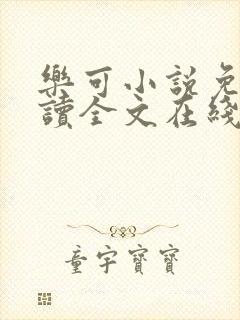 樂可小說免
讀全文在綫
童宇寶寶